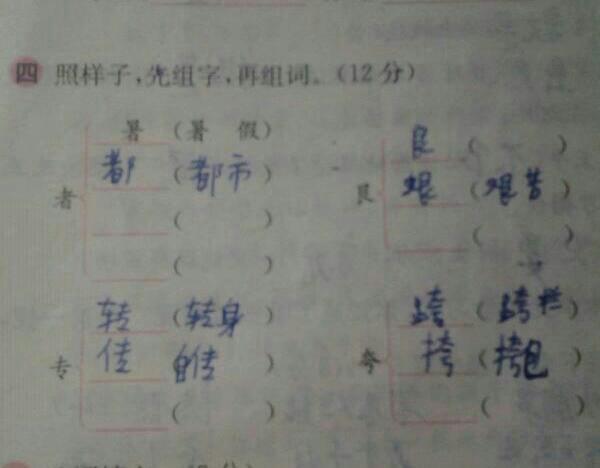 四 照样子,先组字,再组词。(12分)
暑 (暑 假)
都 (都市)
者
( )
( )
良 ( )
艰 (艰苦)
艮
( )
转 (转身)
传 自传)
专
( )
跨 (跨栏)
挎 (挎包)
夸
( )